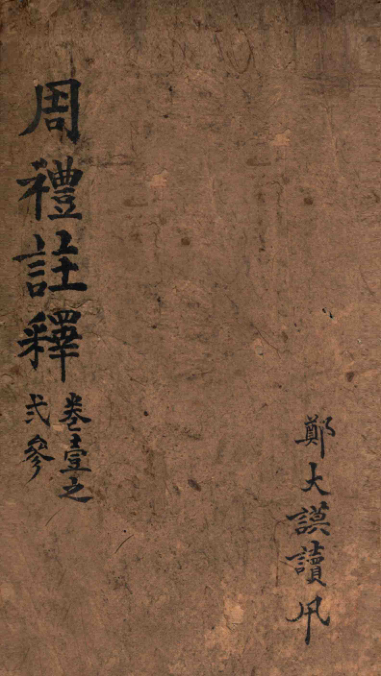 鄭大謨讀
周禮註釋
卷壹之
弍參